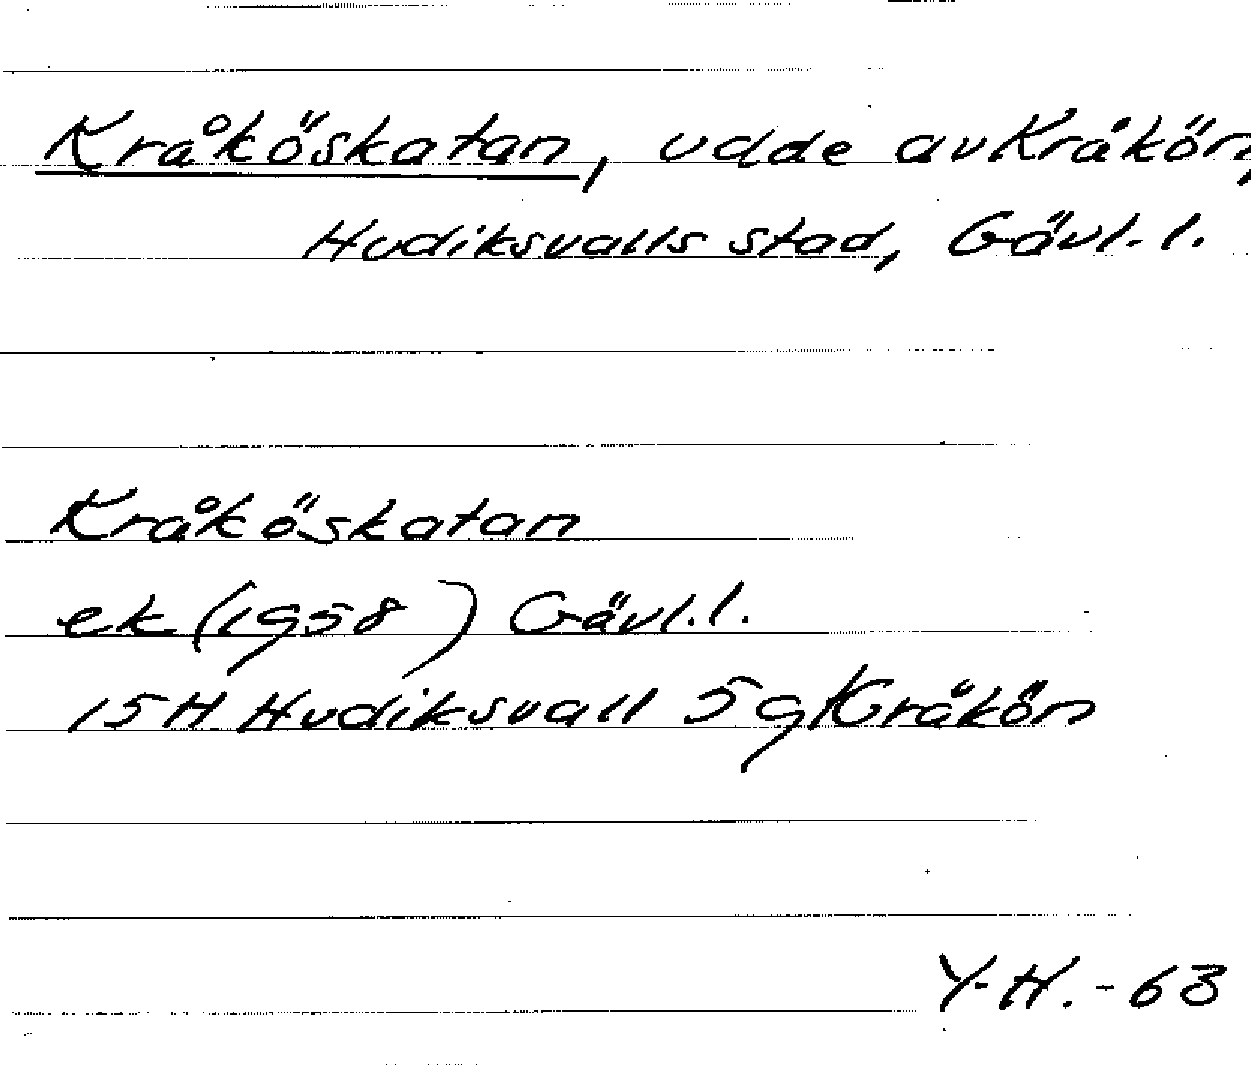 Kråköskatan, udde av Kråkön,
Hudiksvalls stad, Gävl. l.
Kråköskatan
ek (1958) Gävl. l.
15H Hudiksvall 5g Kråkön
Y-H. - 63